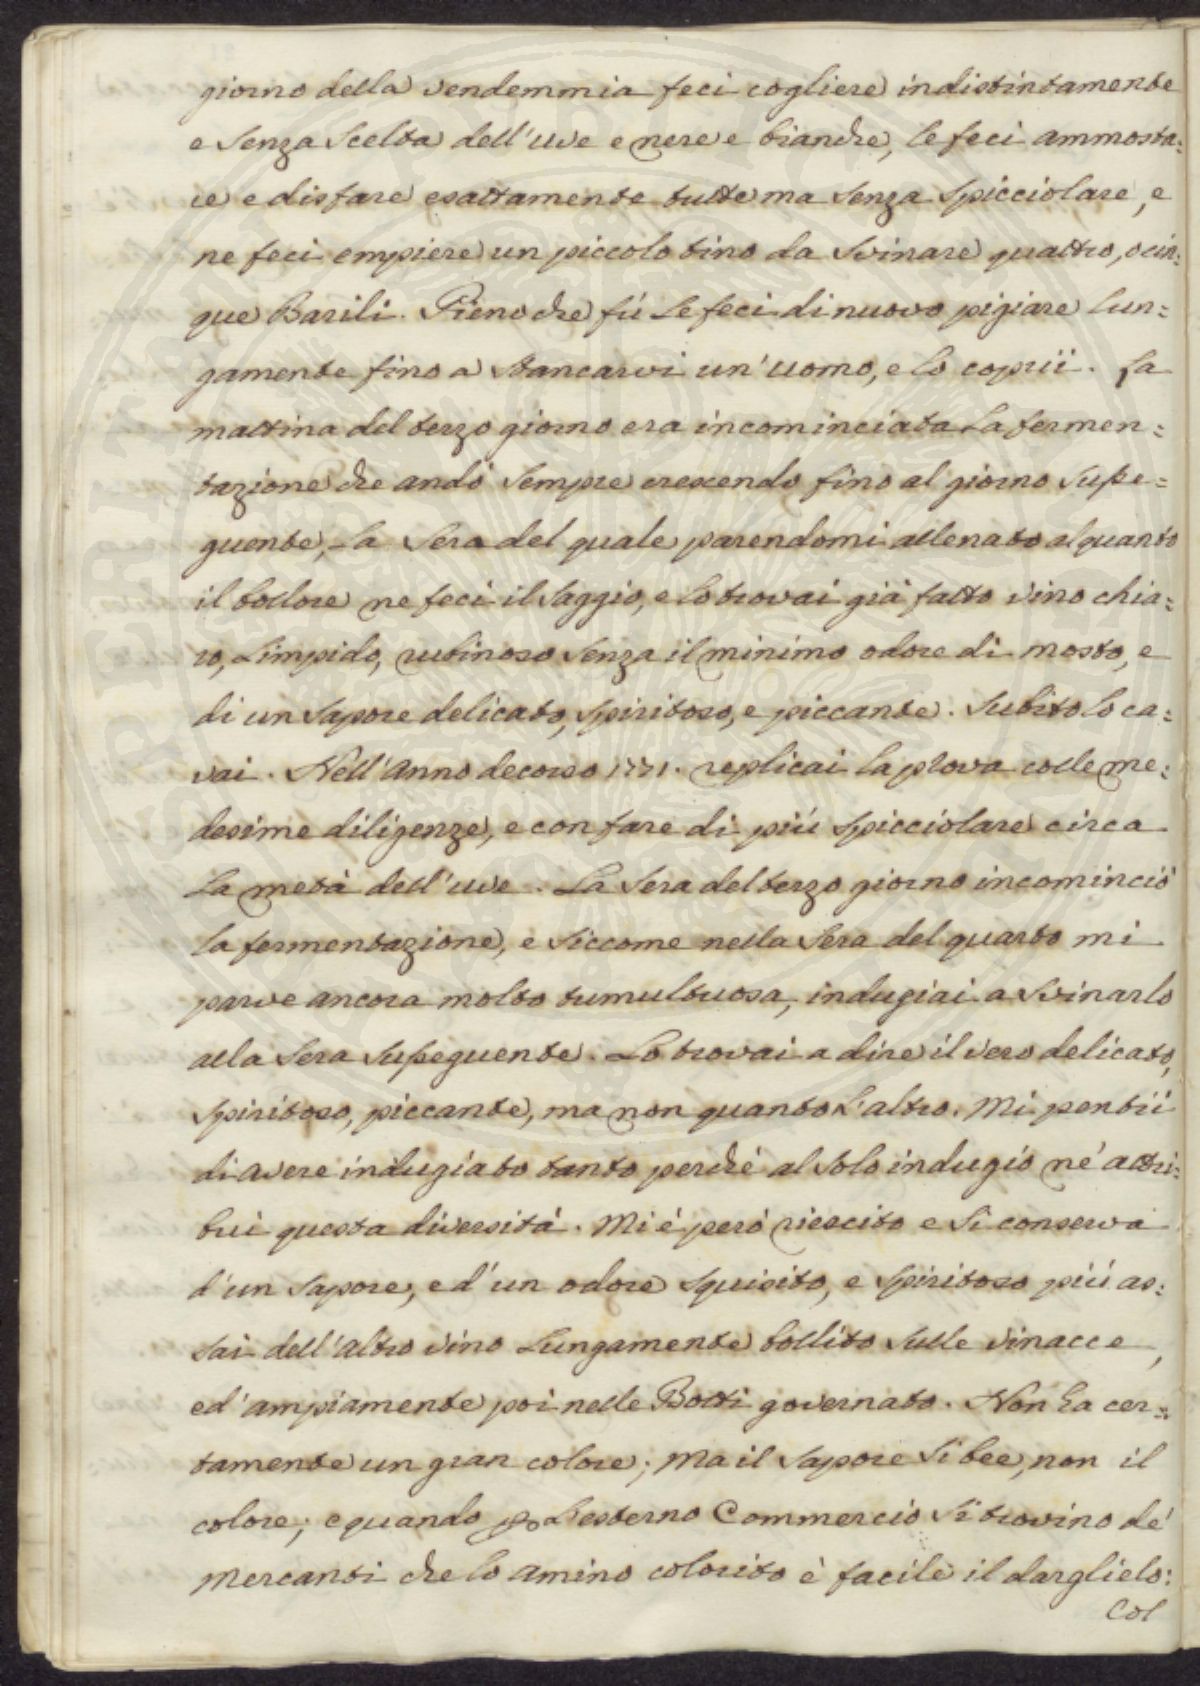 giorno della vendemmia feci cogliere indistintamente
e senza scelta dell'uve e nere e bianche, le feci ammosta=
re e disfare esattamente tutte ma senza spicciolare, e
ne feci empiere un piccolo tino da svinare quattro, o cin=
que Barili. Pieno che fú le feci di nuovo pigiare lun=
gamente fino a stancarvi un'uomo, e lo coprii. La
mattina del terzo giorno era incominciata la fermen=
tazione che andó sempre crescendo fino al giorno susse=
guente, la sera del quale parendomi allenato alquanto
il bollore ne feci il saggio, e lo trovai giá fatto vino chia=
ro, limpido, rubinoso senza il minimo odore di mosto, e
di un sapore delicato, spiritoso, e piccante. Subito lo ca=
vai. Nell'Anno decorso 1771. replicai la prova colle me=
desime diligenze, e con fare di piú spicciolare circa
la metá dell'uve. La sera del terzo giorno incominció
la fermentazione, e siccome nella sera del quarto mi
parve ancora molto tumultuosa, indugiai a svinarlo
alla sera susseguente. Lo trovai a dire il vero delicato,
spiritoso, piccante, ma non quanto l'altro. Mi pentii
di avere indugiato tanto perché al solo indugio né attri=
buí questa diversitá. Mi é peró riescito e si conserva
d'un sapore, e d'un odore squisito, e spiritoso piú as=
sai dell'altro vino lungamente bollito sulle vinacce,
ed'ampiamente poi nelle Botti governato. Non ha cer=
tamente un gran colore; ma il sapore si bee, non il
colore; e quando p. l'esterno Commercio si trovino dé
Mercanti che lo amino colorito é facile il darglielo:
Col